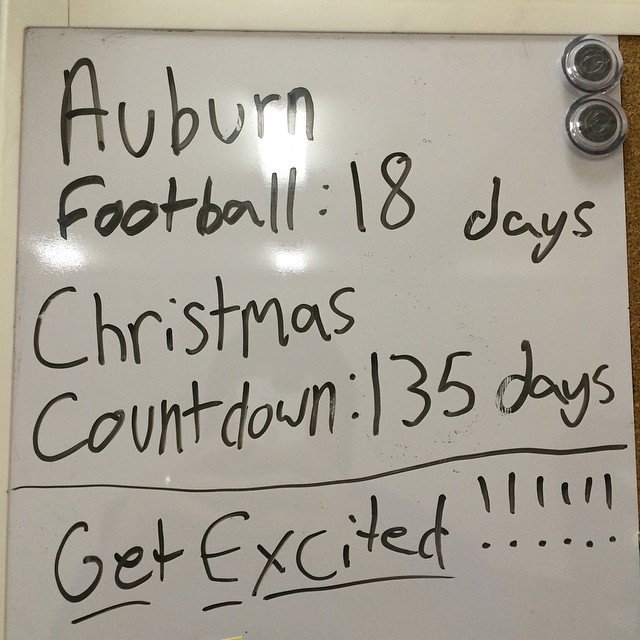 Auburn
Football: 18 days
Christmas
Countdown: 135 days
Get Excited !!!!!!